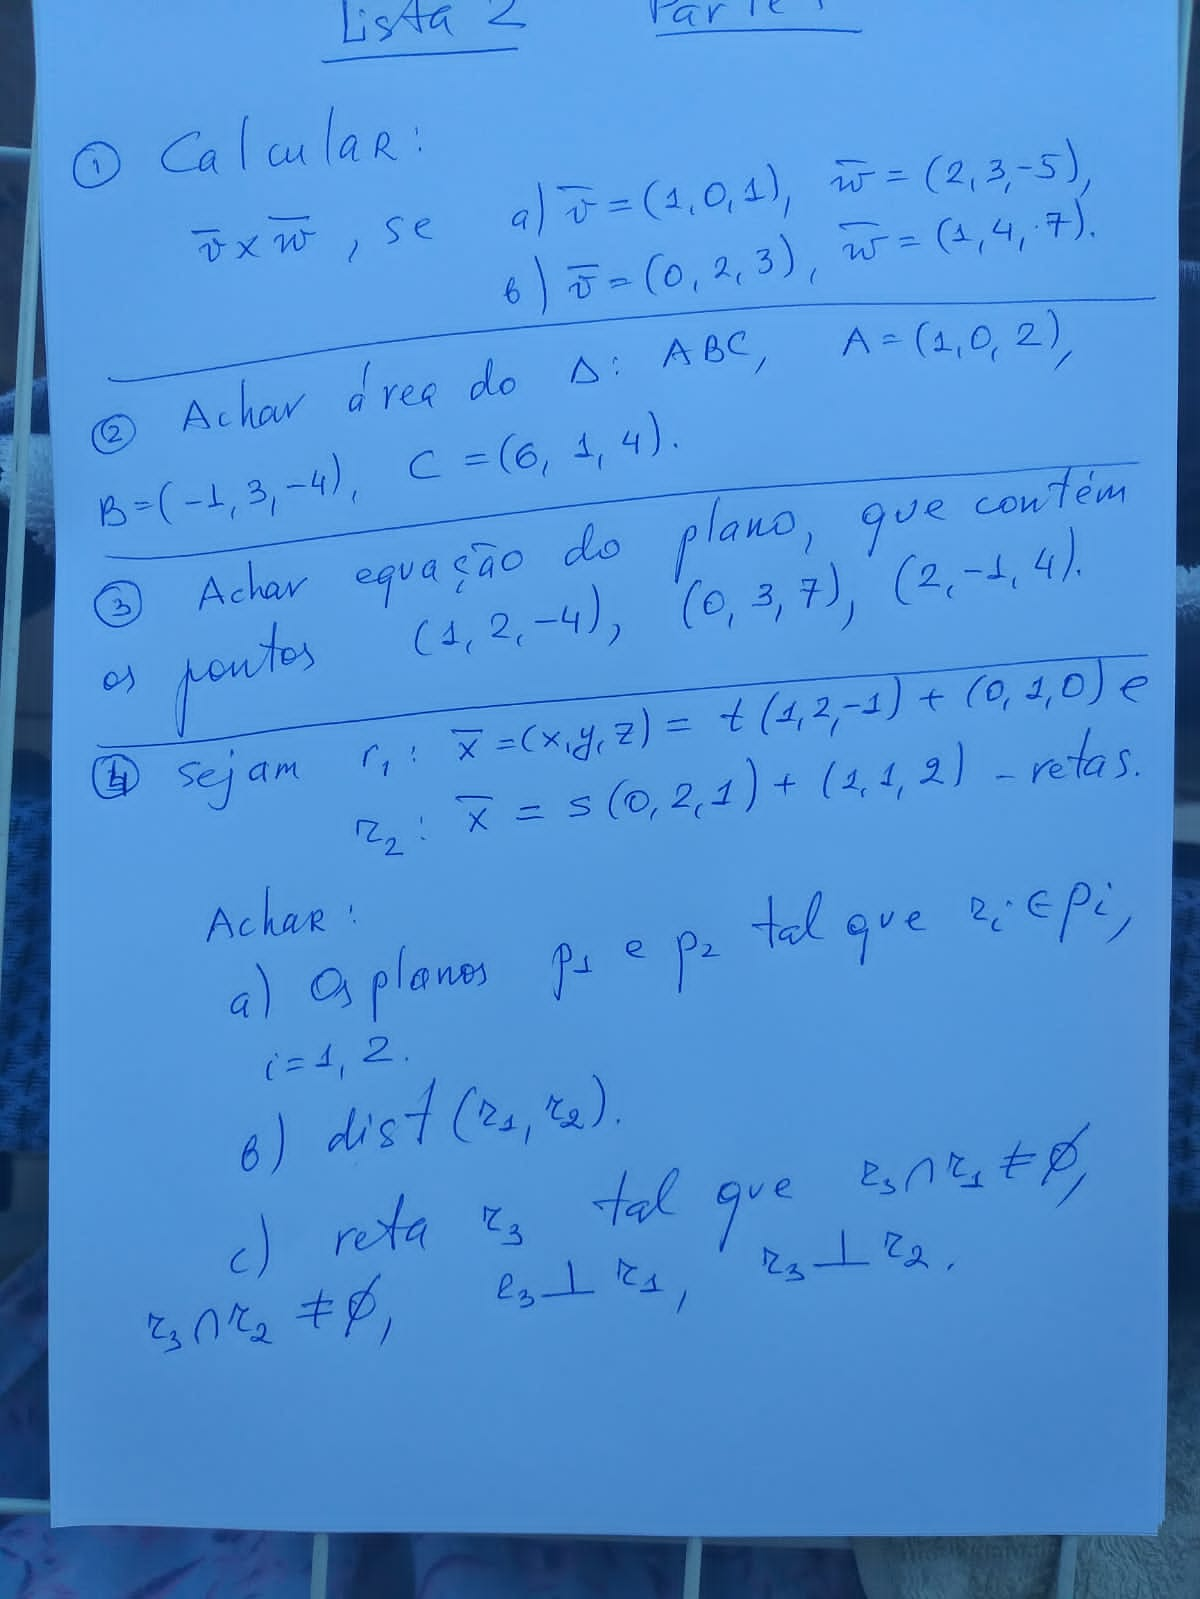 Lista 2 Parte 1
① Calcular:
v̅ x w̅, se a) v̅ = (1, 0, 1), w̅ = (2, 3, -5),
b) v̅ = (0, 2, 3), w̅ = (1, 4, 7).
② Achar área do Δ: ABC, A = (1, 0, 2),
B = (-1, 3, -4), C = (6, 1, 4).
③ Achar equação do plano, que contém
os pontos (1, 2, -4), (0, 3, 7), (2, -1, 4).
④ Sejam r₁: x̅ = (x, y, z) = t(1, 2, -1) + (0, 1, 0) e
r₂: x̅ = s(0, 2, 1) + (1, 1, 2) - retas.
Achar:
a) Os planos p₁ e p₂ tal que rᵢ ∈ pᵢ,
i = 1, 2.
b) dist(r₁, r₂).
c) reta r₃ tal que r₃ ∩ r₁ ≠ ∅,
r₃ ∩ r₂ ≠ ∅, r₃ ⊥ r₁, r₃ ⊥ r₂.